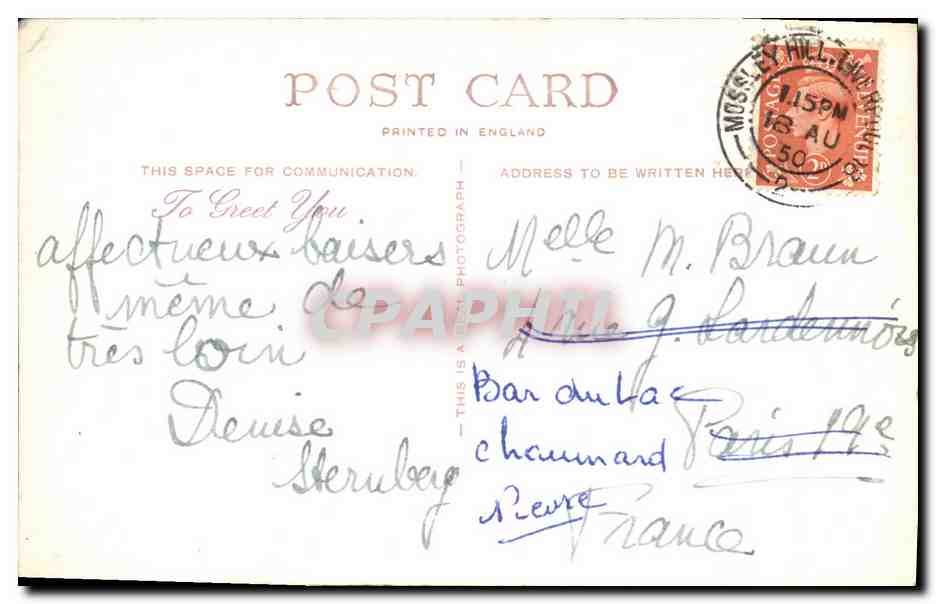 POST CARD
PRINTED IN ENGLAND
THIS SPACE FOR COMMUNICATION.
ADDRESS TO BE WRITTEN HERE
To Greet You
affectueux baisers
même de
très loin
Denise
Sternberg
THIS IS A REAL PHOTOGRAPH
MOSSLEY HILL. LIVERPOOL 18
1.15 PM
18 AU
50
2
POSTAGE REVENUE
2D
Melle M. Braun
4 rue G. Lardennois
Paris 19e
France
Bar du Lac
Chaumard
Nièvre
CPAPHIL